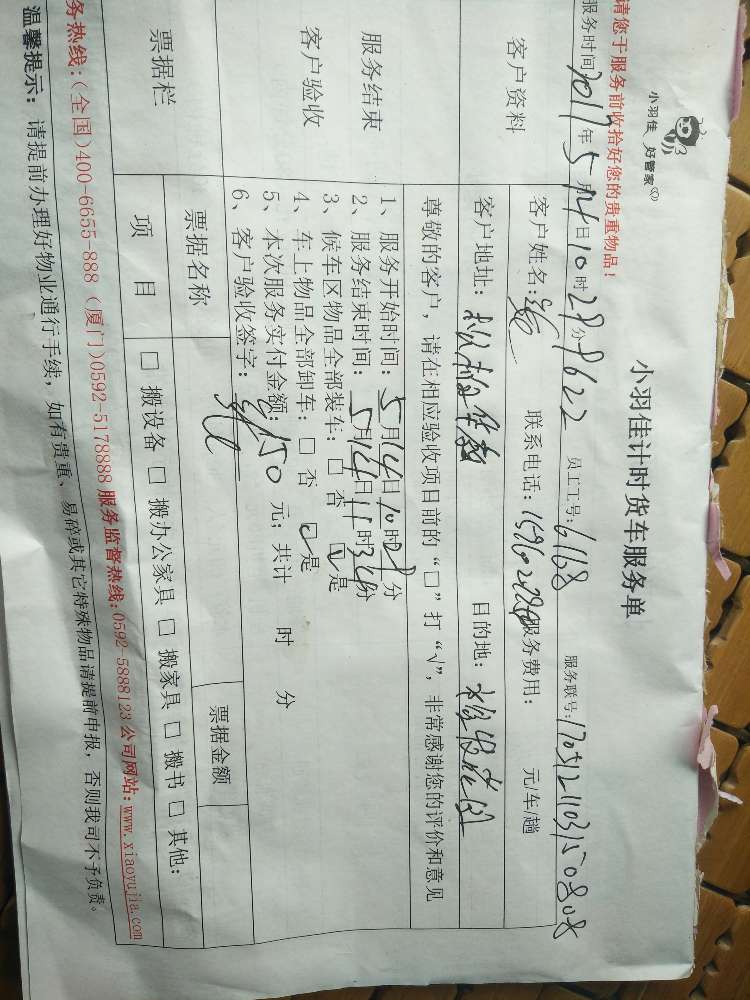 小羽佳 好管家
小羽佳计时货车服务单
请您于服务前收拾好您的贵重物品！
服务时间 2017年5月14日10时28分 员工工号：6168 服务联号：
客户资料
客户姓名： 联系电话： 服务费用： 元/车/趟
客户地址： 目的地：
尊敬的客户，请在相应验收项目前的“□”打“√”，非常感谢您的评价和意见
服务结束
客户验收
1、服务开始时间：5月14日10时28分
2、服务结束时间：5月14日11时34分
3、候车区物品全部装车：□ 否 ☑ 是
4、车上物品全部卸车：□ 否 ☑ 是
5、本次服务实付金额：150 元；共计 时 分
6、客户验收签字：
票据栏
票据名称 票据金额
项 目 □ 搬设备 □ 搬办公家具 □ 搬家具 □ 搬书 □ 其他：
务热线：(全国)400-6655-888 (厦门)0592-5178888 服务监督热线：0592-5888123 公司网站：www.xiaoyujia.com
温馨提示：请提前办理好物业通行手续，如有贵重、易碎或其它特殊物品请提前申报，否则我司不予负责。